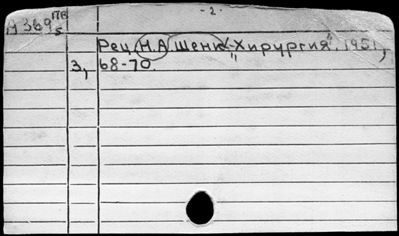 - 2 -
Н 369 76/5
Рец. Н.А Шенк "Хирургия", 1951,
3, 68-70.